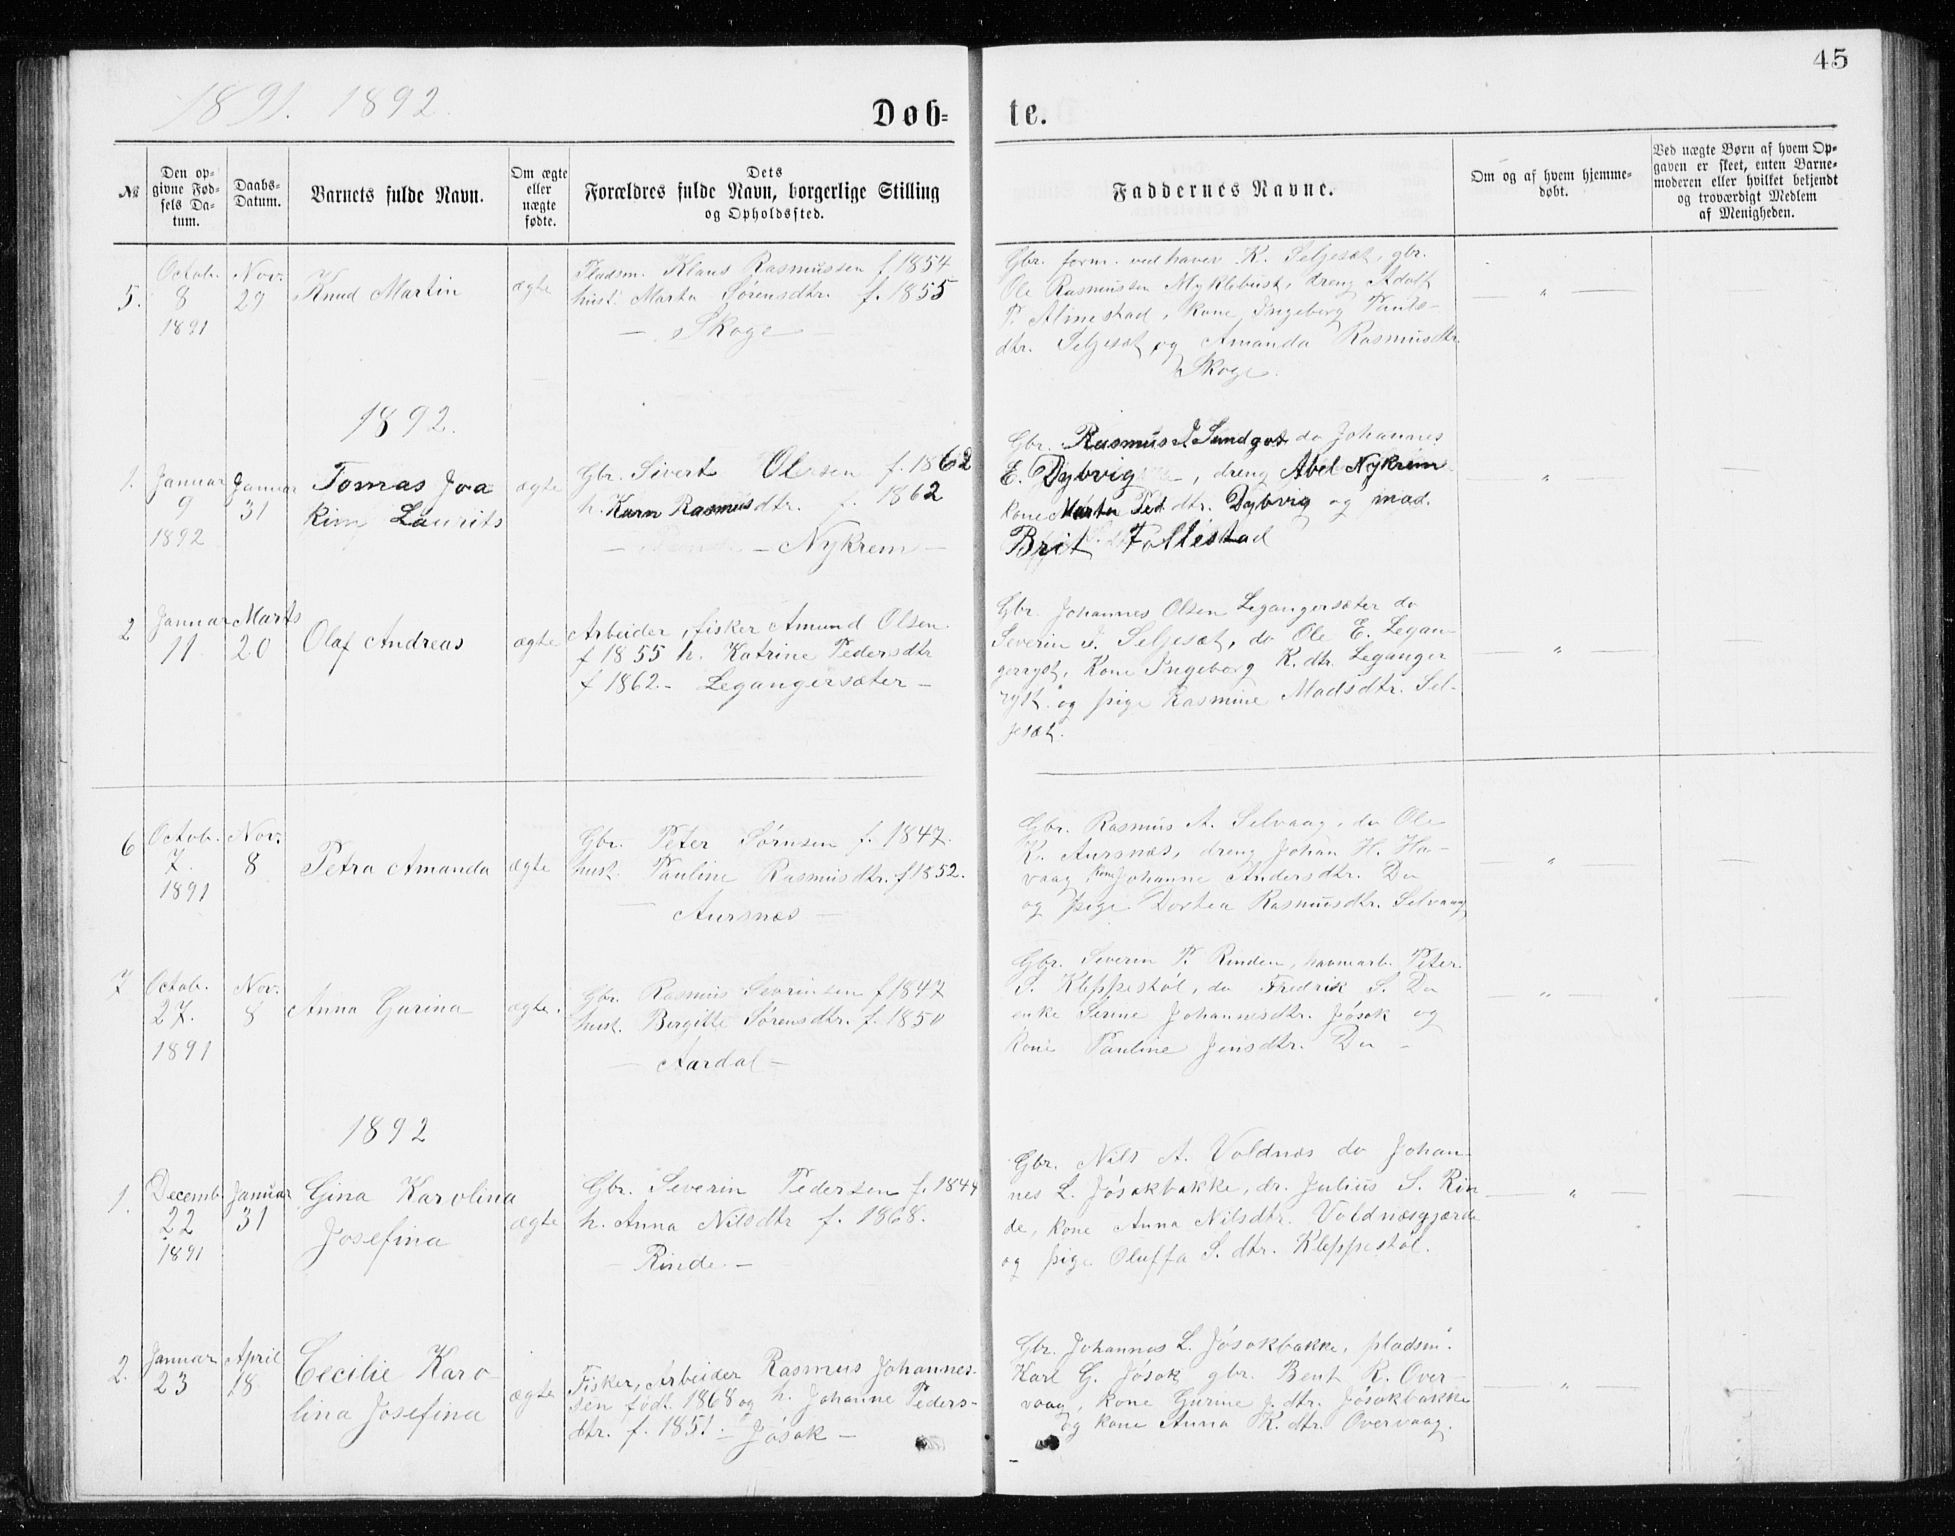 45
1891. 1892.
Døb-
te.
№
Den op-
givne Fød-
sels Da-
tum.
Daabs-
Datum.
Barnets fulde Navn.
Om ægte
eller
uægte
fødte.
Dets
Forældres fulde Navn, borgerlige Stilling
og Opholdssted.
Faddernes Navne.
Om og af hvem hjemme-
døbt.
Ved uægte Børn af hvem Op-
gaven er skeet, enten Barne-
moderen eller hvilket bekjendt
og troværdigt Medlem
af Menigheden.
5.
Octob.
8
1891
Nov.
29
Knud Martin
ægte
Pladsm. Klaus Rasmussen f. 1854
hust. Marta Sørensdtr. f. 1855
— Skoge —
Gbr. form. vedhaver K. Seljesæt, gbr.
Ole Rasmussen Myklebust, dreng Adolf
P. Almestad, kone Ingeborg Pauls-
dtr. Seljesæt og Amanda Rasmusdtr.
Skoge.
— „ —
—
1892.
1.
Januar
9
1892
Januar
31
Tomas Joa
kim Laurits
ægte
Gbr. Sivert Olsen f. 1862
h. Karn Rasmusdtr. f. 1862
— Nykrem —
Gbr. Rasmus J Sandgot do Johannes
E. Dybvig —, dreng Abel Nykrem
kone Marta Ped dtr. Dybvig og mad.
Brit Follestad
„
—
2
Januar
11.
Marts
20
Olaf Andreas
ægte
Arbeider, fisker Amund Olsen
f 1855 h. Katrine Pedersdtr
f 1862. — Legangersæter —
Gbr. Johannes Olsen Legangersæter do
Severin J. Seljesæt, do Ole E. Legan-
gerryst, Kone Ingeborg K. dtr. Leganger
ryst og pige Rasmine Madsdtr. Sel-
jesæt.
— „ —
—
6
Octob.
7.
1891
Nov.
8
Petra Amanda
ægte
Gbr. Peter Sørnsen f. 1847.
hust. Pauline Rasmusdtr. f 1852.
— Aursnes —
Gbr. Rasmus A. Selvaag, do Ole
K. Aursnæs, dreng Johan H. Ha-
vaag, Kone Johanne Andersdtr. Do
og pige Dortea Rasmusdtr. Selvaag
— „ —
—
7
Octob.
27.
1891
Nov.
8
Anna Gurina
ægte.
Gbr. Rasmus Severinsen f 1847
hust. Bergitte Sørensdtr. f. 1850
— Aardal —
Gbr. Severin P. Rinden, havnearb. Peter
S. Kleppestøl, do Fredrik S. Do
enke Senne Johannesdtr. Jøsok og
kone Pauline Jensdtr. Do —
— „ —
—
1892
1.
Decemb.
22
1891
Januar
31
Gina Karolina
Josefina
ægte
Gbr. Severin Pedersen f. 1844
h. Anna Nilsdtr f. 1868.
— Rinde. —
Gbr. Nils A. Voldnæs do Johan-
nes L. Jøsokbakke, dr. Julius S. Rin
de, kone Anna Nilsdtr. Voldnæsgjærde
og pige Oluffa S. dtr. Kleppestøl.
— „ —
—
2.
Januar
23
April
18
Cecilie Karo-
lina Josefina
ægte
Fisker, Arbeider Rasmus Johannes-
sen født 1868 og h. Johanne Peders-
dtr. f. 1851. — Jøsok —
Gbr. Johannes L. Jøsokbakke, pladsm.
Karl G. Jøsok gbr. Bent R. Over-
vaag, kone Gurine J. dtr. Jøsokbakke
og kone Anna K. dtr. Overvaag.
— „ —
—